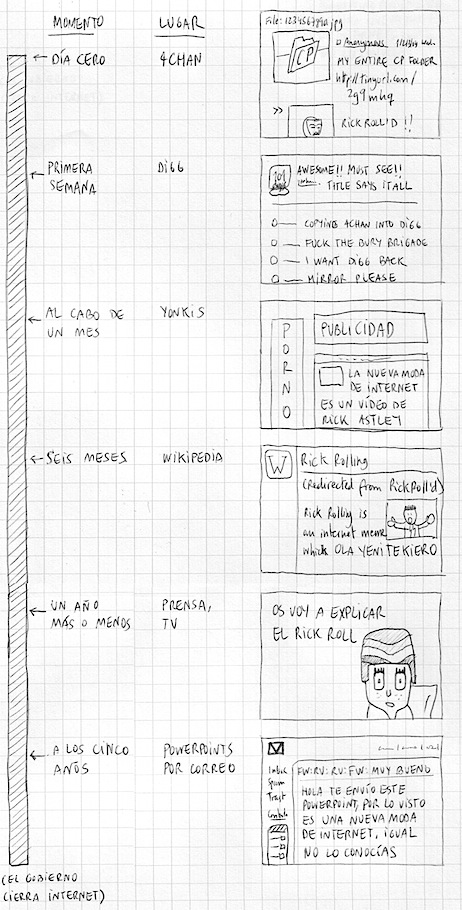 MOMENTO
LUGAR
DÍA CERO
4CHAN
File: 1234567890.jpg
CP
Anonymous
MY ENTIRE CP FOLDER
http://tinyurl.com/
2g9mhq
>>
RICKROLL'D !!
PRIMERA
SEMANA
DIGG
AWESOME!! MUST SEE!!
TITLE SAYS IT ALL
COPYING 4CHAN INTO DIGG
FUCK THE BURY BRIGADE
I WANT DIGG BACK
MIRROR PLEASE
AL CABO DE
UN MES
YONKIS
PORNO
PUBLICIDAD
LA NUEVA MODA
DE INTERNET
ES UN VÍDEO DE
RICK ASTLEY
SEIS MESES
WIKIPEDIA
W
Rick Rolling
(Redirected from RickRoll'd)
Rick Rolling is
an internet meme
which OLA YENITEKIERO
UN AÑO
MÁS O MENOS
PRENSA,
TV
OS VOY A EXPLICAR
EL RICK ROLL
A LOS CINCO
AÑOS
POWERPOINTS
POR CORREO
Inbox
Spam
Trash
FW:RV: RV: FW: MUY BUENO
HOLA TE ENVÍO ESTE
POWERPOINT, POR LO VISTO
ES UNA NUEVA MODA
DE INTERNET, IGUAL
NO LO CONOCÍAS
(EL GOBIERNO
CIERRA INTERNET)